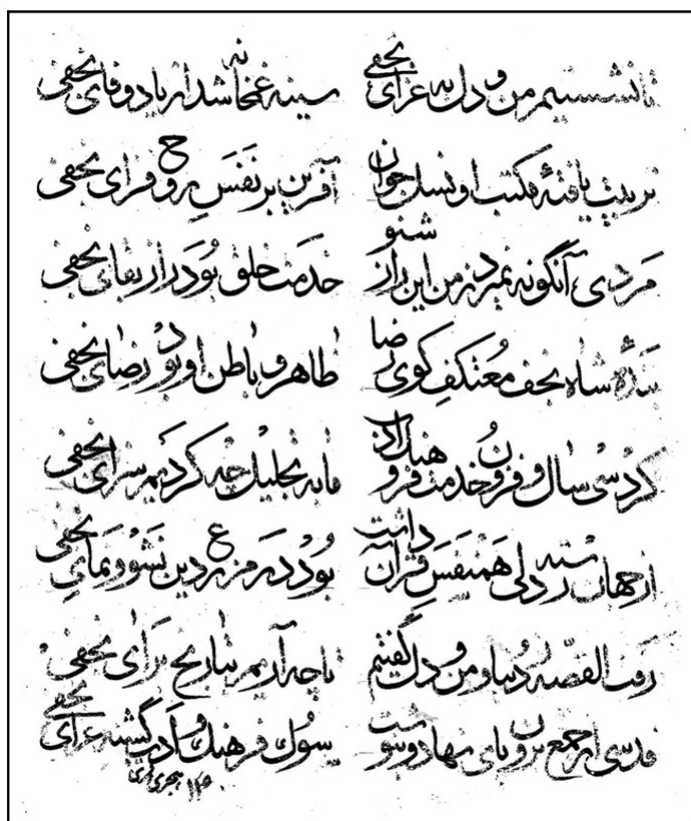 تا نشستیم من و دل به عزای نجفی سینه غمخانه شد از یاد وفای نجفی
تربیت یافتهٔ مکتب او نسل جوان آفرین بر نفَسِ روح فزای نجفی
مَردی، آنگونه نمیرد ز من این راز شنو خدمت خلق بُوَد راز بقای نجفی
بندهٔ شاه نجف معتکفِ کوی رضا ظاهر و باطن او بود رضای نجفی
کرد سی سال و فزون خدمت ما به تجلیل چه کردیم سزای نجفی
از جهان رسته دلی همنفَسِ قرآن داشت بود در مزرع دین نشو و نمای نجفی
رفت القصّه ز دنیا و من و دل گفتیم تا چه آریم به تاریخ برای نجفی
قدسی از جمع برون پای نهاد و بنوشت سوک فرهنگ و ادب گشته عزای نجفی
هجری قمری